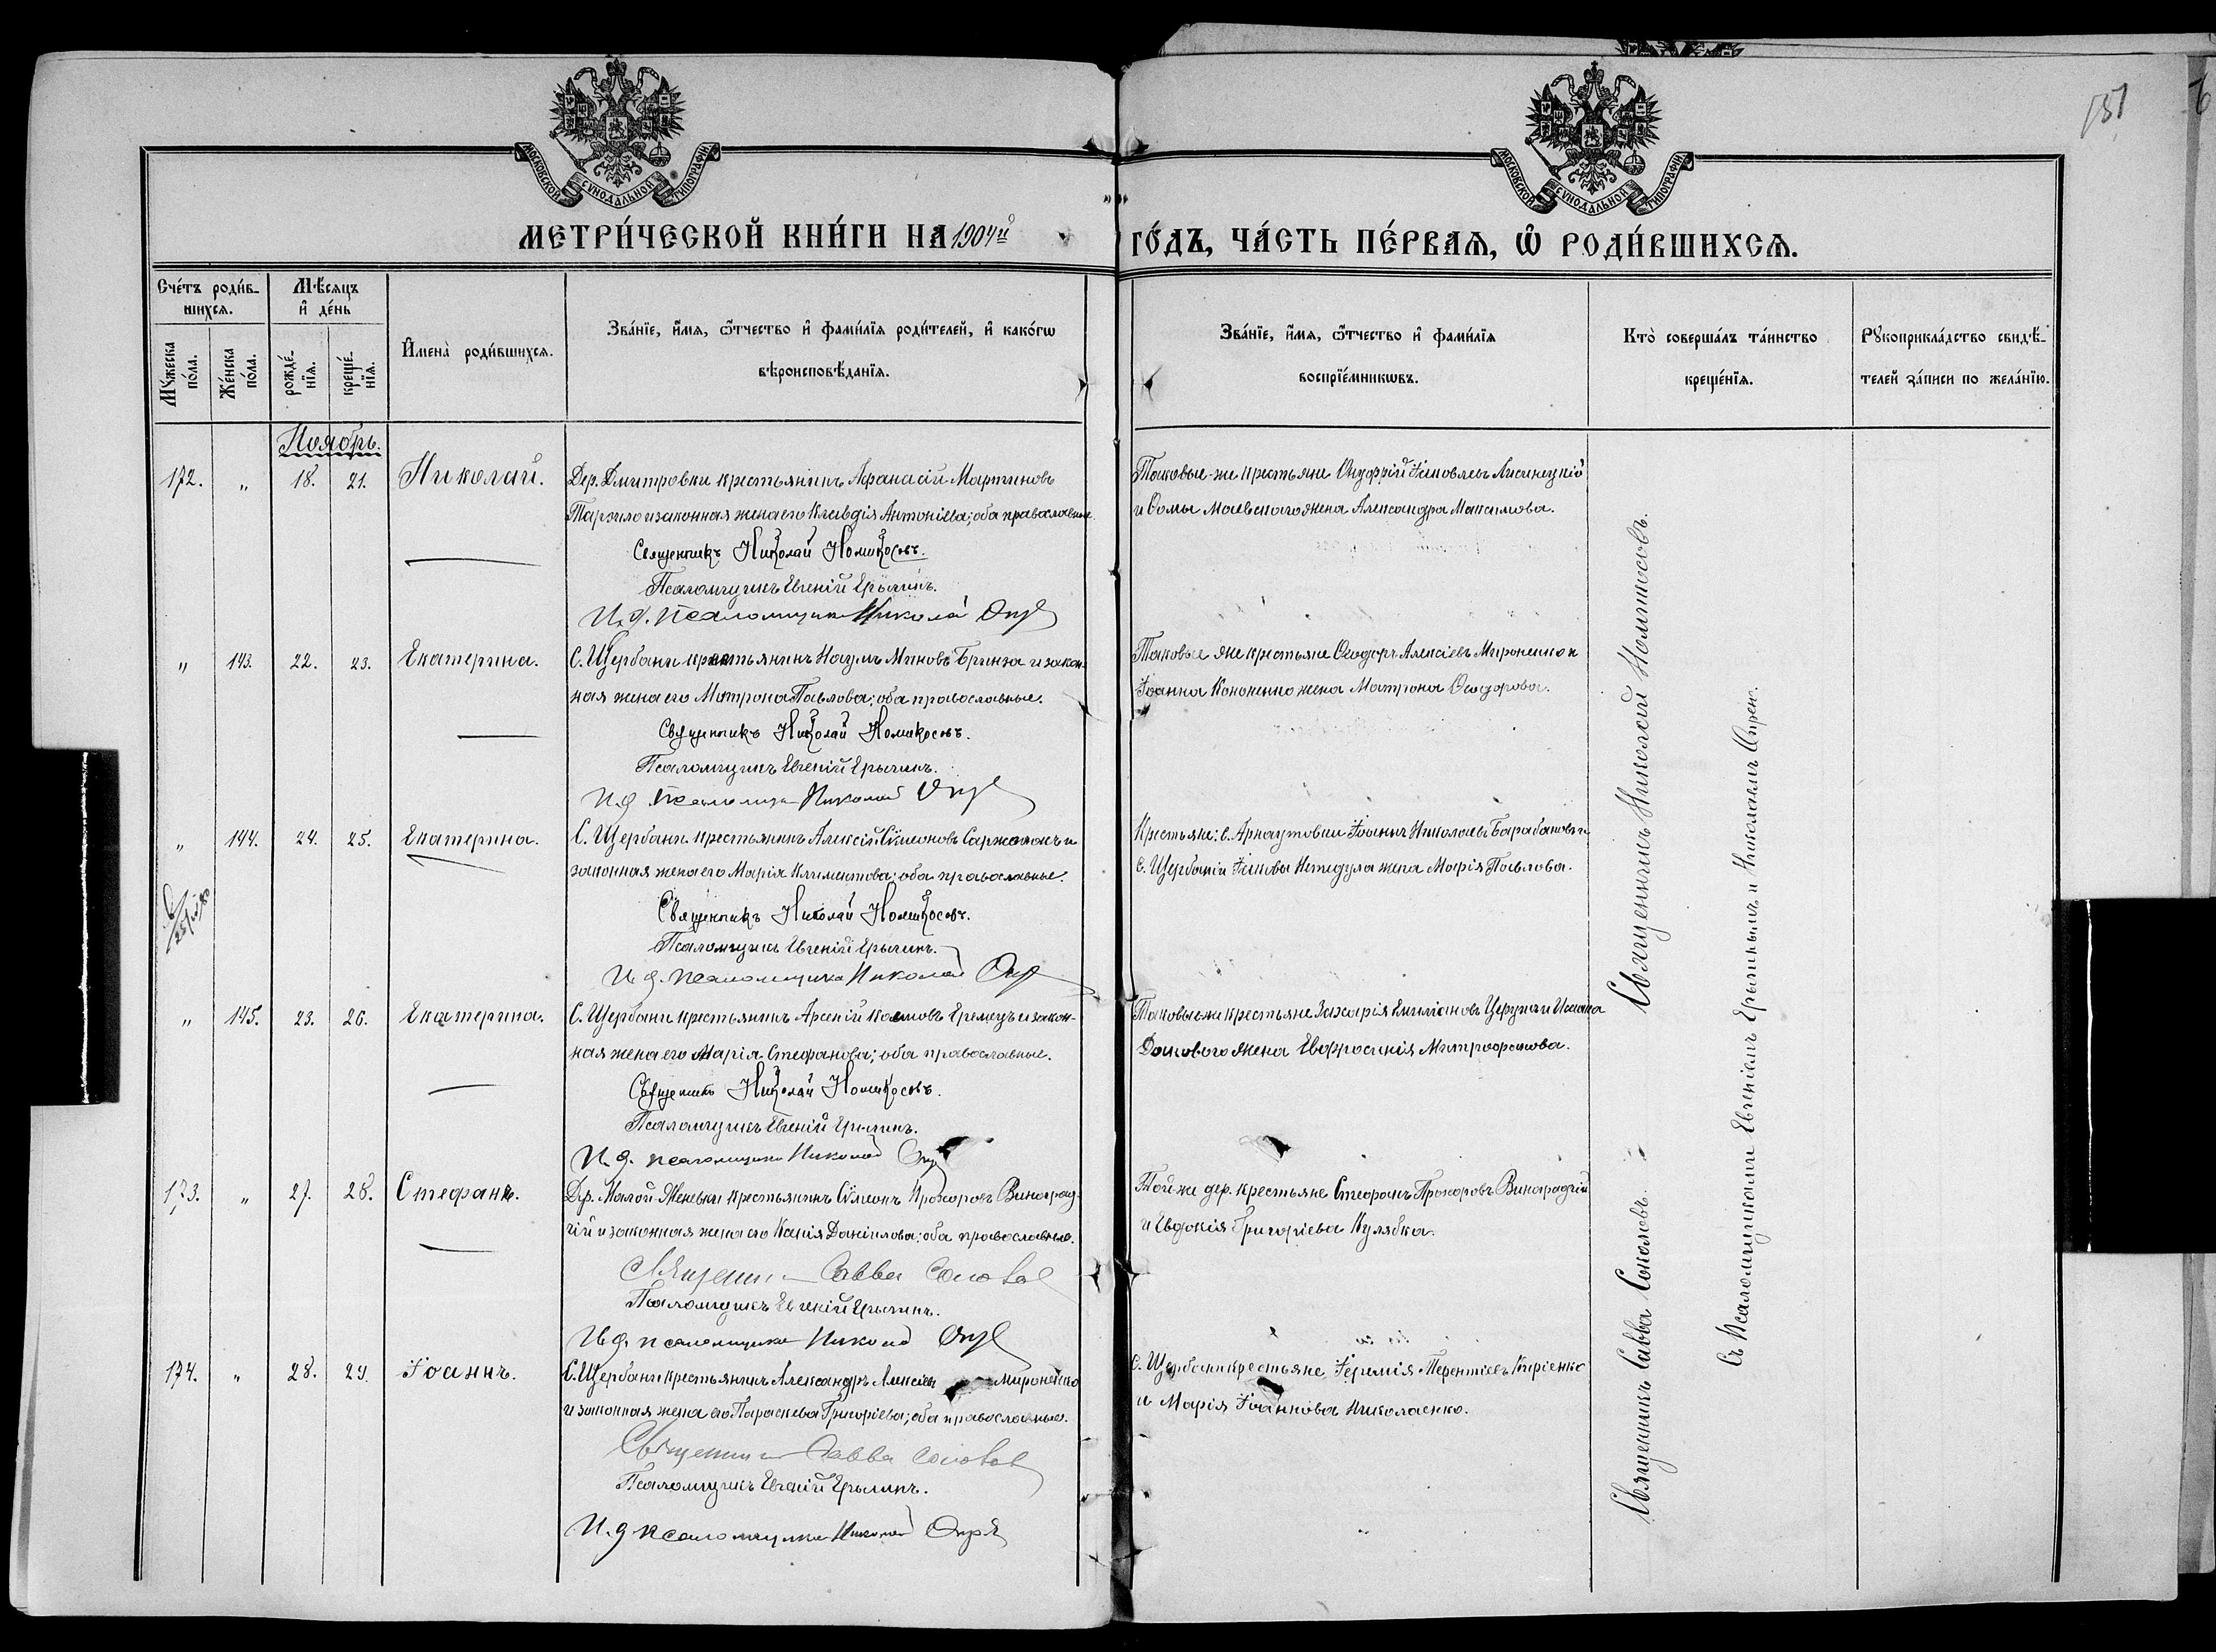 151
МОСКОВСКОЙ СУНОДАЛЬНОЙ ТИПОГРАФІИ
МОСКОВСКОЙ СУНОДАЛЬНОЙ ТИПОГРАФІИ
МЕТРИ́ЧЕСКОЙ КНИ́ГИ НА 1904й ГО́ДЪ, ЧА́СТЬ ПЕ́РВАѦ, Ѽ РОДИ́ВШИХСѦ.
Сче́тъ роди́в-
шихсѧ.
Мꙋ́жеска по́ла.
Же́нска по́ла.
Мѣ́сѧцъ
и҆ де́нь
рожде́-
нїѧ.
креще́-
нїѧ.
И҆мена̀ роди́вшихсѧ.
Зва́нїе, и҆́мѧ, ѻ҆́тчество и҆ фами́лїѧ роди́телей, и҆ како́гѡ
вѣроисповѣ́данїѧ.
Зва́нїе, и҆́мѧ, ѻ҆́тчество и҆ фами́лїѧ
воспрїе́мникѡвъ.
Кто̀ соверша́лъ та́инство
креще́нїѧ.
Рꙋкоприкла́дство свидѣ́-
телей за́писи по жела́нїю.
Ноябрь.
172. „ 18. 21. Николай.
Дер. Дмитровки крестьянинъ Афанасій Мартиновъ
и законная жена его Клавдія Антоніева; оба православные.
Священникъ Николай Номикосовъ.
Псаломщикъ Евгеній Ерыгинъ.
И. д. псаломщика Николай
Таковые-же крестьяне Онуфрій Іаковлевъ Лисинецкій
и Ѳомы Маевскаго жена Александра Максимова.
„ 143. 22. 23. Екатерина.
С. Щербани крестьянинъ Наумъ Миновъ Бринза и закон-
ная жена его Матрона Павлова; оба православные.
Священникъ Николай Номикосовъ.
Псаломщикъ Евгеній Ерыгинъ.
И. д. псаломщика Николай
Таковые же крестьяне Ѳеодоръ Алексіевъ Мироненко и
Іоанна Кононенко жена Матрона Ѳеодорова.
„ 144. 24. 25. Екатерина.
С. Щербани крестьянинъ Алексій Сѵмеоновъ и
законная жена его Марія Климентова; оба православные.
Священникъ Николай Номикосовъ.
Псаломщикъ Евгеній Ерыгинъ.
И. д. псаломщика Николай
Крестьяне: с. Арнаутовки Іоаннъ Николаевъ Барабановъ и
с. Щербани Іакова жена Марія Павлова.
„ 145. 23. 26. Екатерина.
С. Щербани крестьянинъ Арсеній Еремецъ и закон-
ная жена его Марія Стефанова; оба православные.
Священникъ Николай Номикосовъ.
Псаломщикъ Евгеній Ерыгинъ.
И. д. псаломщика Николай
Таковые же крестьяне Захарія Емиліановъ и Исаака
жена Евфросинія Митрофанова.
173. „ 27. 28. Стефанъ.
Дер. Малой-Женевки крестьянинъ Сѵмеонъ Прохоровъ Виноград-
гій и законная жена его Ксенія Даніилова; оба православные.
Священникъ Савва Соколовъ
Псаломщикъ Евгеній Ерыгинъ.
И. д. псаломщика Николай
Той-же дер. крестьяне Стефанъ Прохоровъ Виноградгій
и Евдокія Григоріева Кулябка.
174. „ 28. 29. Іоаннъ.
С. Щербани крестьянинъ Александръ Алексіевъ Мироненко
и законная жена его Параскева Григоріева; оба православные.
Священникъ Савва Соколовъ
Псаломщикъ Евгеній Ерыгинъ.
И. д. псаломщика Николай
С. Щербани крестьяне Іеремія Терентіевъ Киріенко
и Марія Іоаннова Николаенко.
Священникъ Николай Номикосовъ.
Священникъ Савва Соколовъ.
Съ псаломщиками Евгеніемъ Ерыгинымъ и Николаемъ